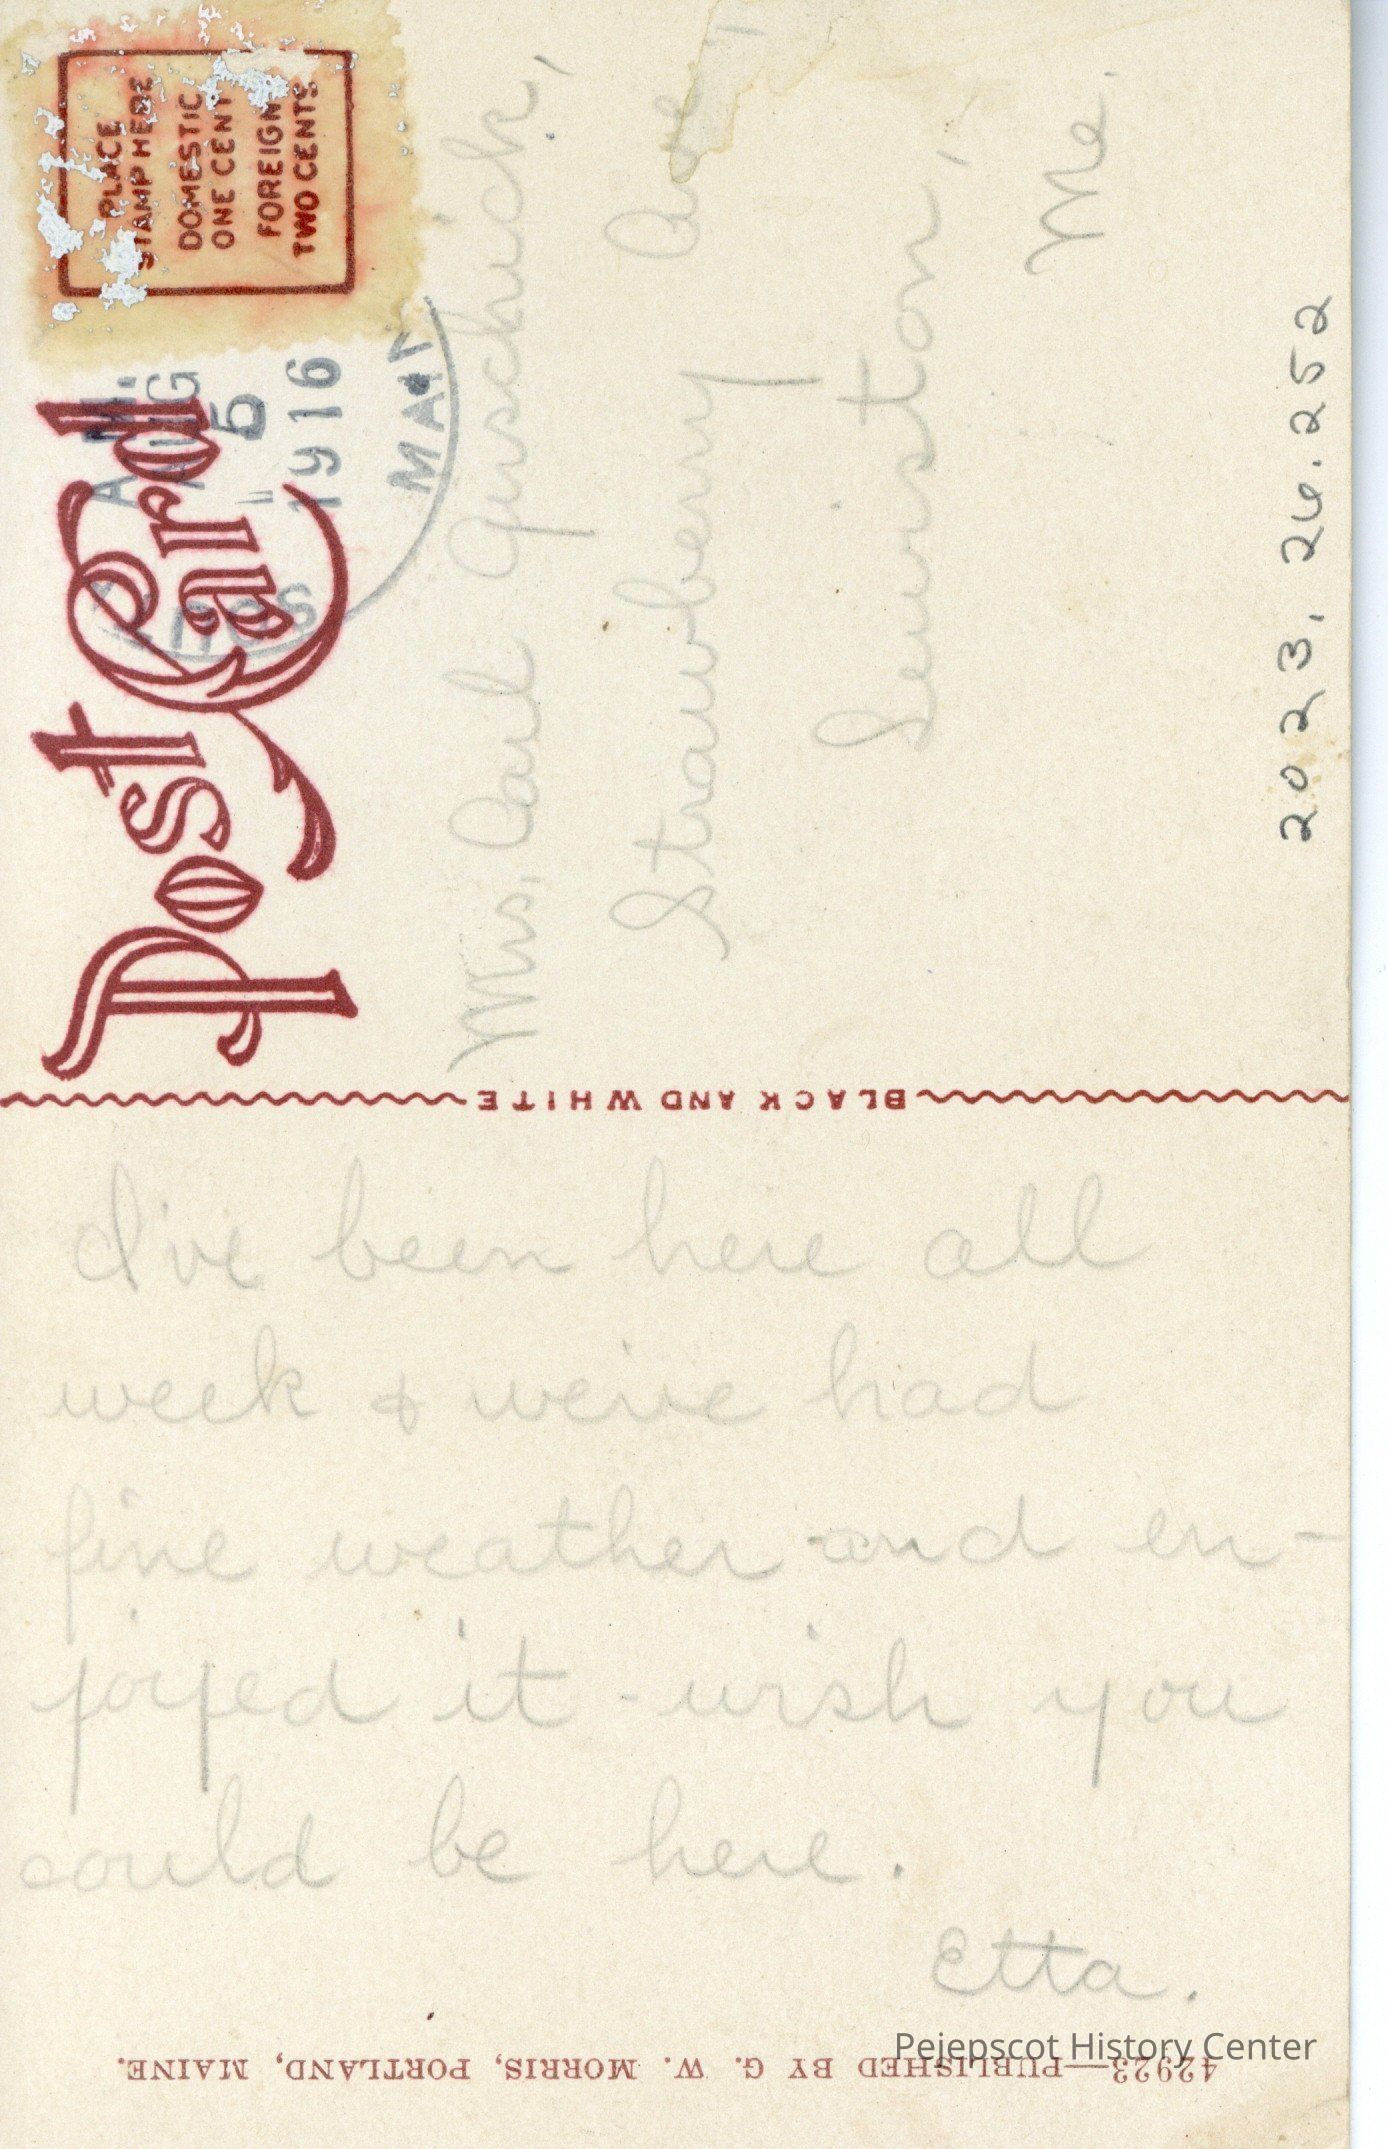 Post Card
PLACE
STAMP HERE
DOMESTIC
ONE CENT
FOREIGN
TWO CENTS
AUG
5
1916
SOUTH
Mrs. Carl
Strawberry Ave
Lewiston,
Me.
2023.26.252
BLACK AND WHITE
I've been here all
week & we've had
fine weather and en-
joyed it - wish you
could be here.
Etta.
42923—PUBLISHED BY G. W. MORRIS, PORTLAND, MAINE.
Pejepscot History Center